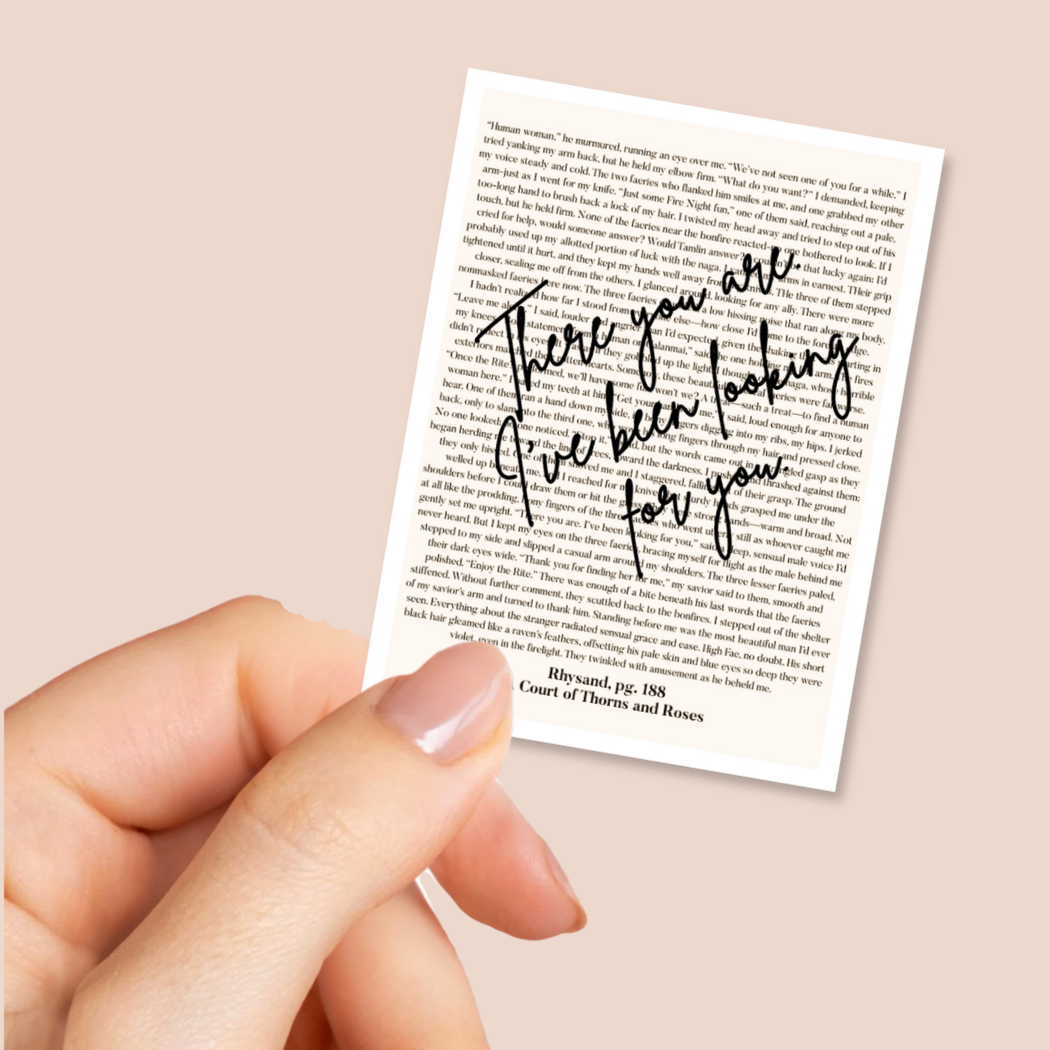 "Human woman," he murmured, running an eye over me. "We've not seen one of you for a while." I
tried yanking my arm back, but he held my elbow firm. "What do you want?" I demanded, keeping
my voice steady and cold. The two faeries who flanked him smiles at me, and one grabbed my other
arm-just as I went for my knife. "Just some Fire Night fun," one of them said, reaching out a pale,
too-long hand to brush back a lock of my hair. I twisted my head away and tried to step out of his
touch, but he held firm. None of the faeries near the bonfire reacted- one bothered to look. If I
cried for help, would someone answer? Would Tamlin answer? I that lucky again: I'd
probably used up my allotted portion of luck with the naga. I arms in earnest. THeir grip
tightened until it hurt, and they kept my hands well away from The three of them stepped
closer, sealing me off from the others. I glanced around, looking for any ally. There were more
nonmasked faeries here now. The three faeries a low hissing noise that ran along my body.
I hadn't realized how far I stood from else—how close I'd come to the forest edge.
"Leave me alone," I said, louder and angrier than I'd expected given the shaking starting in
my knees. statement from a human on Calanmai," said the one holding my arm. fires
didn't reflect in his eyes. It was as they gobbled up the light. I thought naga, whose horrible
exteriors matched their rotten hearts. Some these beautiful faeries were far worse.
"Once the Rite's performed, we'll have some fun, won't we? A treat—such a treat—to find a human
woman here." I bared my teeth at him. "Get your me," I said, loud enough for anyone to
hear. One of them ran a hand down my side, bony fingers digging into my ribs, my hips. I jerked
back, only to slam into the third one, who long fingers through my hair and pressed close.
No one looked; no one noticed. "Stop it," I said, but the words came out in strangled gasp as they
began herding me toward the line of trees, toward the darkness. I pushed and thrashed against them:
they only hissed. One of them shoved me and I staggered, falling out of their grasp. The ground
welled up beneath me, and I reached for my knives sturdy hands grasped me under the
shoulders before I could draw them or hit the grass. They were strong hands—warm and broad. Not
at all like the prodding, bony fingers of the three faeries who went still as whoever caught me
gently set me upright. "There you are. I've been looking for you," said deep, sensual male voice I'd
never heard. But I kept my eyes on the three faeries, bracing myself for flight as the male behind me
stepped to my side and slipped a casual arm around my shoulders. The three lesser faeries paled,
their dark eyes wide. "Thank you for finding her for me," my savior said to them, smooth and
polished. "Enjoy the Rite." There was enough of a bite beneath his last words that the faeries
stiffened. Without further comment, they scuttled back to the bonfires. I stepped out of the shelter
of my savior's arm and turned to thank him. Standing before me was the most beautiful man I'd ever
seen. Everything about the stranger radiated sensual grace and ease. High Fae, no doubt. His short
black hair gleamed like a raven's feathers, offsetting his pale skin and blue eyes so deep they were
violet, even in the firelight. They twinkled with amusement as he beheld me.
There you are.
I've been looking
for you.
Rhysand, pg. 188
Court of Thorns and Roses